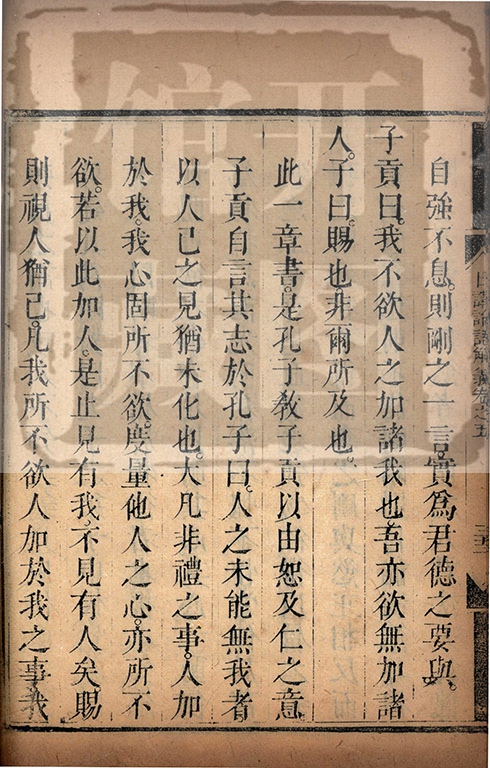 自強不息。則剛之一言。實爲君德之要與。
子貢曰。我不欲人之加諸我也。吾亦欲無加諸
人。子曰。賜也非爾所及也。
此一章書。是孔子敎子貢以由恕及仁之意。
子貢自言其志於孔子曰。人之未能無我者
以人己之見猶未化也。大凡非禮之事。人加
於我。我心固所不欲。度量他人之心。亦所不
欲。若以此加人。是止見有我。不見有人矣。賜
則視人猶己。凡我所不欲人加於我之事。我